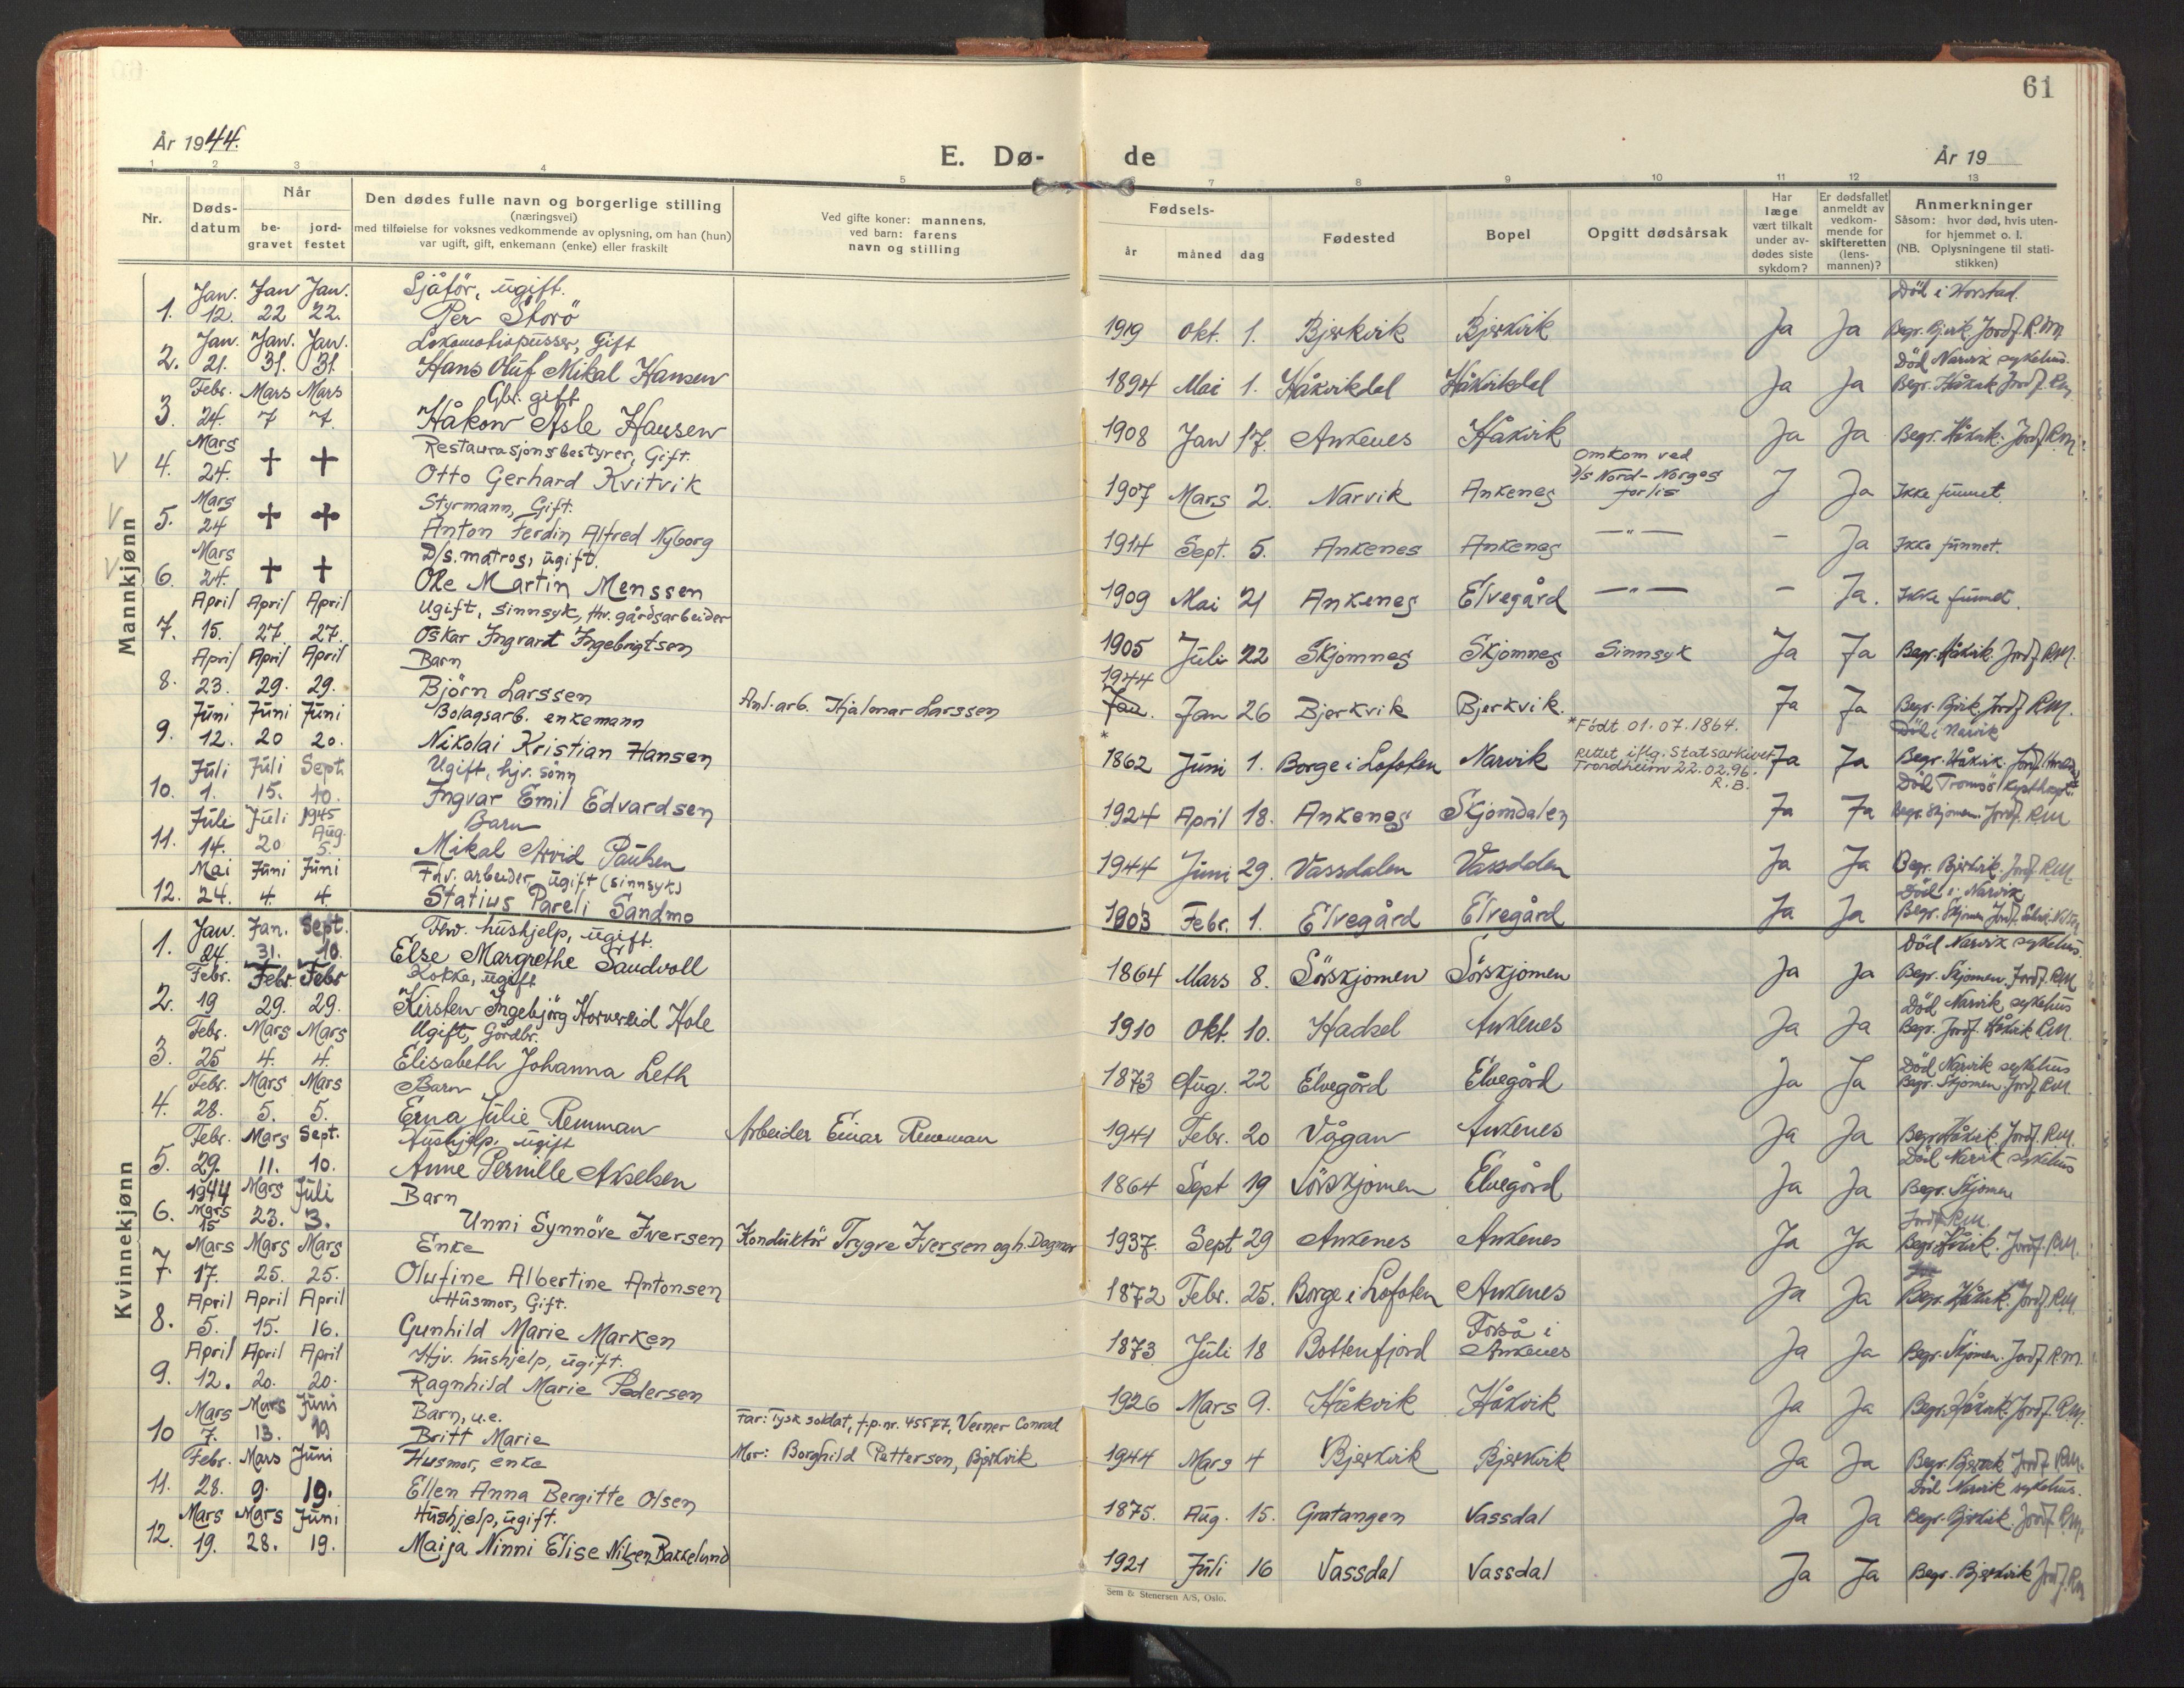 61
År 1944.
E. Dø-
de
År 19
1 2 3 4 5 6 7 8 9 10 11 12 13
Nr.
Døds-
datum
Når
be-
gravet
jord-
festet
Den dødes fulle navn og borgerlige stilling
(næringsvei)
med tilføielse for voksnes vedkommende av oplysning, om han (hun)
var ugift, gift, enkemann (enke) eller fraskilt
Ved gifte koner: mannens,
ved barn: farens
navn og stilling
Fødsels-
år måned dag
Fødested
Bopel
Opgitt dødsårsak
Har
læge
vært tilkalt
under av-
dødes siste
sykdom?
Er dødsfallet
anmeldt av
vedkom-
mende for
skifteretten
(lens-
mannen)?
Anmerkninger
Såsom: hvor død, hvis uten-
for hjemmet o. l.
(NB. Oplysningene til stati-
stikken)
Mannkjønn
Jan. Jan Jan. Sjåför, ugift. Död i Harstad.
1. 12. 22 22. Per Storö 1919 Okt. 1. Bjerkvik Bjerkvik Ja Ja Begr. Bjerk. Jordf. R.M.
Jan. Jan. Jan. Lokomotivpusser, Gift Död Narvik sykehus.
2. 21. 31. 31. Hans Oluf Mikal Hansen 1894 Mai 1. Håkvikdal Håkvikdal Ja Ja Begr. Håkvik Jordf. RM
Febr. Mars Mars Gbr. gift
3. 24. 7 7. Håkon Asle Hansen 1908 Jan 17. Ankenes Håkvik Ja Ja Begr. Håkvik. Jordf. R.M.
Mars Restaurasjonsbestyrer, Gift. Omkom ved
V 4. 24. + + Otto Gerhard Kvitvik 1907 Mars 2. Narvik Ankenes D/s Nord-Norges J Ja Ikke funnet.
forlis
Mars Styrmann, Gift.
V 5. 24 + + Anton Ferdin Alfred Nyborg 1914 Sept. 5. Ankenes Ankenes —"— – Ja Ikke funnet.
Mars D/s. matros, ugift.
V 6. 24. + + Ole Martin Menssen 1909 Mai 21 Ankenes Elvegård —"— – Ja. Ikke funnet.
April April April Ugift, sinnsyk, fhv. gårdsarbeider
7. 15. 27 27. Oskar Ingvart Ingebrigtsen 1905 Juli 22 Skjomnes Skjomnes Sinnsyk Ja Ja Begr. Håkvik. Jordf. RM.
April April April Barn 1944
8. 23. 29. 29. Björn Larssen Anl.arb. Hjalmar Larssen Jan. Jan 26 Bjerkvik Bjerkvik. Ja Ja Begr. Bjerk. Jordf. RM.
Juni Juni Juni Bolagsarb. enkemann * *Født 01.07.1864. Död i Narvik
9. 12. 20 20. Nikolai Kristian Hansen 1862 Juni 1. Borge i Lofoten Narvik Rettet iflg. Statsarkivet Ja Ja Begr. Håkvik.
Trondheim 22.02.96.
R.B.
Juli Juli Sept. Ugift, hjv. sönn Död Tromsö
10. 1. 15. 10. Ingvar Emil Edvardsen 1924 April 18. Ankenes Skjomdalen Ja Ja Begr. Skjomen. Jordf. RM
Juli Juli 1945 Barn
Aug.
11. 14. 20 5. Mikal Arvid Paulsen 1944 Juni 29. Vassdalen Vassdalen Ja Ja Begr. Bjerkvik. Jordf. RM.
Mai Juni Juni Fhv. arbeider, ugift (sinnsyk) Död i Narvik
12. 24. 4. 4. Statius Pareli Sandmo 1903 Febr. 1. Elvegård Elvegård Ja Ja Begr. Skjomen Jordf.
Kvinnekjønn
Jan. Jan. Sept. Fhv. hushjelp, ugift. Död Narvik sykehus.
1. 24. 31. 10. Else Margrethe Sandvoll 1864 Mars 8. Sörskjomen Sörskjomen Ja Ja Begr. Skjomen. Jordf. RM
Febr. Febr. Febr Kokke, ugift Död Narvik sykehus
2. 19 29. 29. Kirsten Ingebjörg Hole 1910 Okt. 10. Hadsel Ankenes Ja Ja Begr. Jordf. Håkvik RM.
Febr. Mars Mars Ugift, Gårdbr. Död Narvik sykehus
3. 25 4. 4. Elisabeth Johanna Leth 1873 Aug. 22 Elvegård Elvegård Ja Ja Begr. Skjomen. Jordf. RM.
Febr. Mars Mars Barn
4. 28. 5. 5. Erna Julie Remman Arbeider Einar Remman 1941 Febr. 20 Vågan Ankenes Ja Ja Begr. Håkvik. Jordf. RM.
Febr. Mars Sept. Hushjelp, ugift Död Narvik sykehus
5. 29. 11. 10. Anne Pernille Akselsen 1864 Sept 19 Sörskjomen Elvegård Ja Ja Begr. Skjomen
Jordf. RM.
1944 Mars Juli Barn
6. Mars 15 23. 3. Unni Synnöve Iversen Konduktör Trygve Iversen og h. Dagmar 1937. Sept 29 Ankenes Ankenes Ja Ja Begr. Håkvik. Jordf. RM.
Mars Mars Mars Enke
7. 17. 25. 25. Olufine Albertine Antonsen 1872 Febr. 25. Borge i Lofoten Ankenes Ja Ja Begr. Håkvik. Jordf. RM.
April April April Husmor, Gift. Forså i
8. 5. 15. 16. Gunhild Marie Marken 1873 Juli 18 Bottenfjord Ankenes Ja Ja Begr. Skjomen. Jordf. RM.
April April April Hjv. hushjelp, ugift.
9. 12. 20. 20. Ragnhild Marie Pedersen 1926 Mars 9. Håkvik Håkvik Ja Ja Begr. Håkvik. Jordf. RM.
Mars Mars Juni Barn, u.e. Far: Tysk soldat, f.p.nr. 45577, Verner Conrad
10 7. 13. 19 Britt Marie Mor: Borghild Pettersen, Bjerkvik 1944 Mars 4 Bjerkvik Bjerkvik Ja Ja Begr. Bjerkvik Jordf. RM.
Febr. Mars Juni Husmor, enke Död Narvik sykehus.
11. 28. 9. 19. Ellen Anna Bergitte Olsen 1875. Aug. 15. Gratangen Vassdal Ja Ja Begr. Bjerkvik. Jordf. RM.
Mars Mars Juni Hushjelp, ugift.
12. 19. 28. 19. Maija Ninni Elise Nilsen Bakkelund 1921 Juli 16 Vassdal Vassdal Ja Ja Begr. Bjerkvik Jordf. RM
Sem & Stenersen A/S, Oslo.